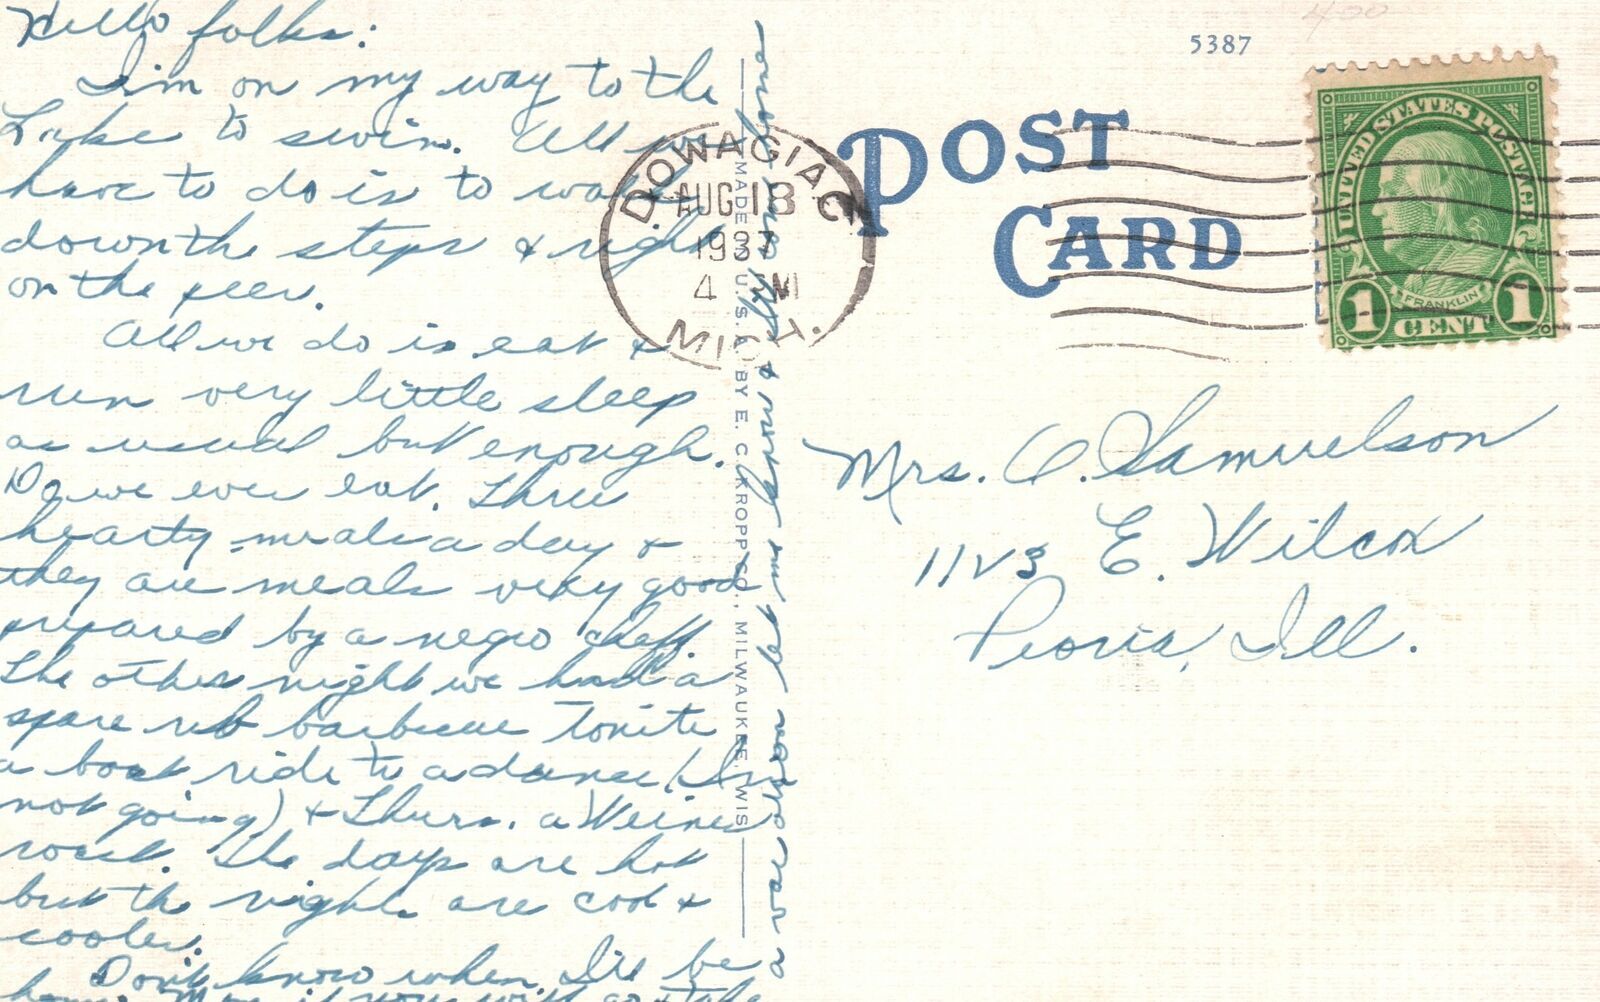 Hello folks:
I'm on my way to the
Lake to swim. All we
have to do is to walk
down the steps & right
on the peer.
All we do is eat &
run very little sleep
as usual but enough.
Do we ever eat. Three
hearty meals a day &
they are meals very good
prepared by a negro cheff
The other night we had a
spare rib barbecue Tonite
a boat ride to a dance (I'm
not going) & Thurs. a Weiner
roast. The days are hot
but the nights are cool &
cooler.
Don't know when I'll be
home.
5387
POST
CARD
DOWAGIAC
AUG 18
1937
4 M
MICH.
MADE IN U.S.A. BY E. C. KROPP CO., MILWAUKEE, WIS.
UNITED STATES POSTAGE
FRANKLIN
1 CENT 1
Mrs. O. Samuelson
1123 E. Wilcox
Peoria, Ill.